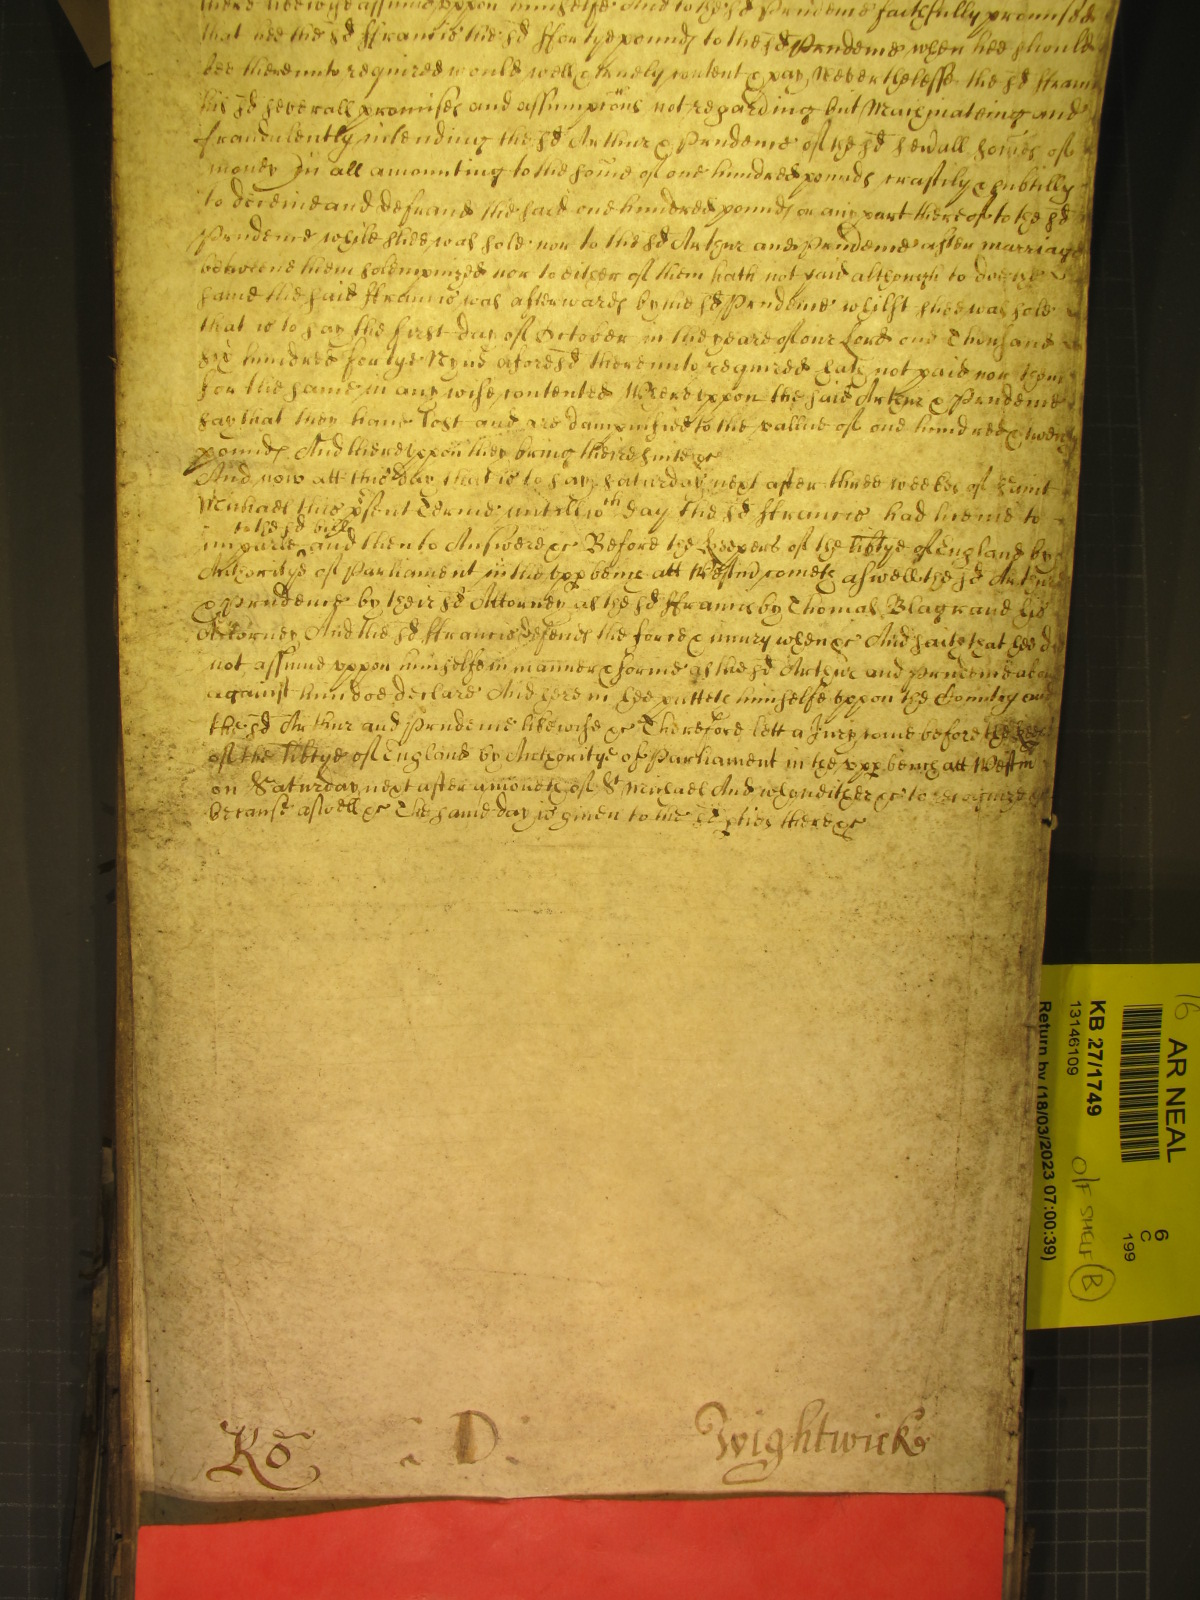 there likewise assume uppon himselfe And to the sd Prudence faithfully promised
that hee the sd ffrancis the sd ffortye pounds to the sd Prudence when hee should
bee thereunto required would well & truely content & pay Neverthelesse the sd ffrancis
his sd severall promises and assumpcons not regarding but Machinateing and
fraudulently intending the sd Arthur & Prudence of the sd sevall somes of
money In all amounting to the some of one hundred pounds craftily & subtilly
to deceive and defraud the said one hundred pounds or any part thereof to the sd
Prudence while shee was sole nor to the sd Arthur and Prudence after marriage
betweene them solempnized nor to either of them hath not paid although to doe the
same the said ffrancis was afterwards by the sd Prudence whilst shee was sole
that is to say the first day of October in the yeare of our Lord one Thousand
six hundred fortye Nyne aforesd thereunto required hath not paid nor them
for the same in any wise contented Whereuppon the said Arthur & Prudence
say that they have lost and are dampnified to the vallue of one hundred & twenty
pounds And thereuppon they bring theire suite &c
And now att this day that is to say Saturday next after three weekes of Saint
Michael this psent Terme untill wch day the sd ffrancis had licence to
to the sd bill
imparle and then to Answere &c Before the Keepers of the libtye of England by
Authoritye of Parliament in the upp bench att Westm cometh aswell the sd Arthur
& Prudence by their sd Attorney as the sd ffrancis by Thomas Blagrave his
Attorney And the sd ffrancis defends the force & injury when &c And saith that hee did
not assume uppon himselfe in manner & forme as the sd Arthur and Prudence above
against him doe declare And herein hee putteth himselfe uppon the Countrey and
the sd Arthur and Prudence likewise &c Therefore lett a Jury come before the
of the libtye of England by Authoritye of Parliament in the upp bench att Westm
on Saturday next after a moneth of St Michael And who neither &c to recognize
because aswell &c The same day is given to the sd pties there &c
Ro
D
Wightwick
16
AR NEAL
KB 27/1749
13146109
Return by (18/03/2023 07:00:39)
O/F SHELF B
6
C
199